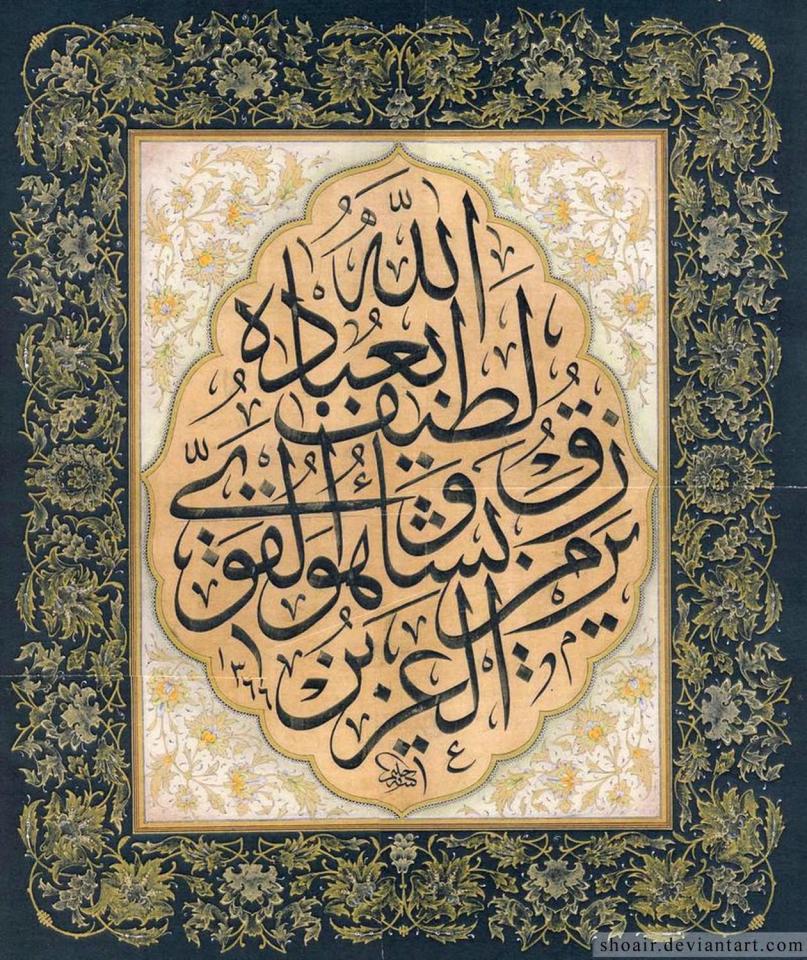 الله
لطيف بعباده
يرزق من يشاء
وهو القوي
العزيز
١٣٦٦
حليم
shoair.deviantart.com